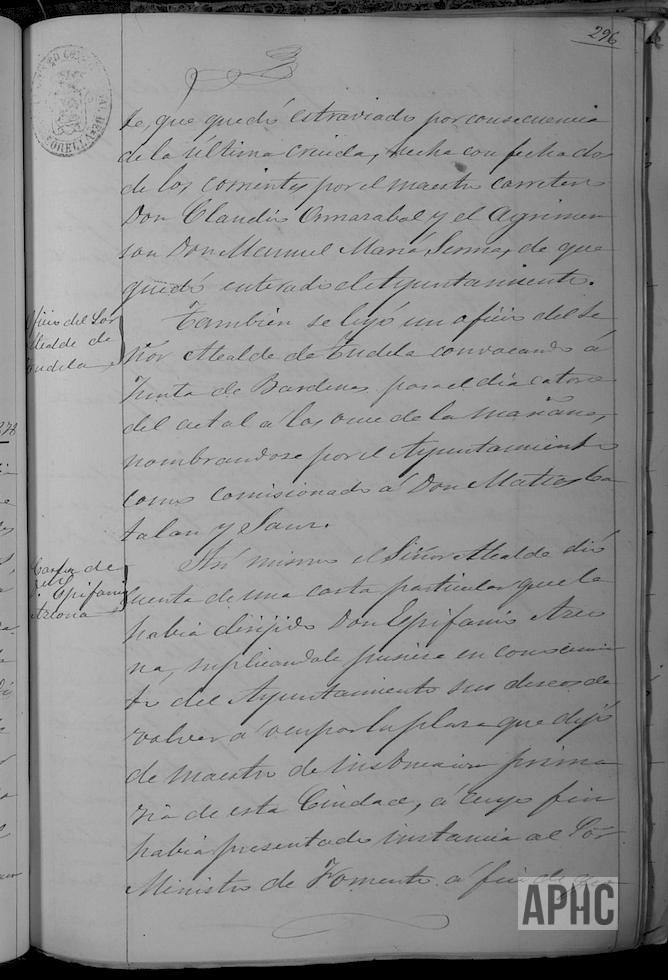 296
te, que quedó estraviado por consecuencia
de la última crecida, hecha con fecha dos
de los corrientes por el maestro carretero
Don Claudio Ormazabal y el Agrimen
sor Don Manuel Maria Serma, de que
quedó enterado el Ayuntamiento.
Oficio del Sor
Alcalde de
Tudela
Tambien se leyó un oficio del Se
ñor Alcalde de Tudela convocando á
Junta de Bardenas para el dia catorce
del actal á las once de la mañana,
nombrandose por el Ayuntamiento
como Comisionado á Don Matias Ca
talan y Sanz.
Carta de
D. Epifanio
Arzona
Asi mismo el Señor Alcalde dió
cuenta de una carta particular que le
habia dirijido Don Epifanio
na, suplicandole pusiera en conocimien
to del Ayuntamiento sus deseos de
volver á ocupar la plaza que dejó
de maestro de instruccion prima
ria de esta Ciudad, á cuyo fin
habia presentado instancia al Sor
Ministro de Fomento á fin de
APHC